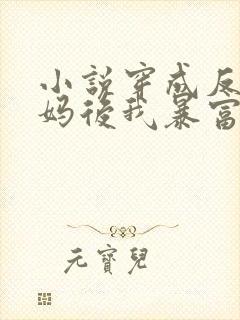 小說穿成反
媽後我暴富
元寶兒